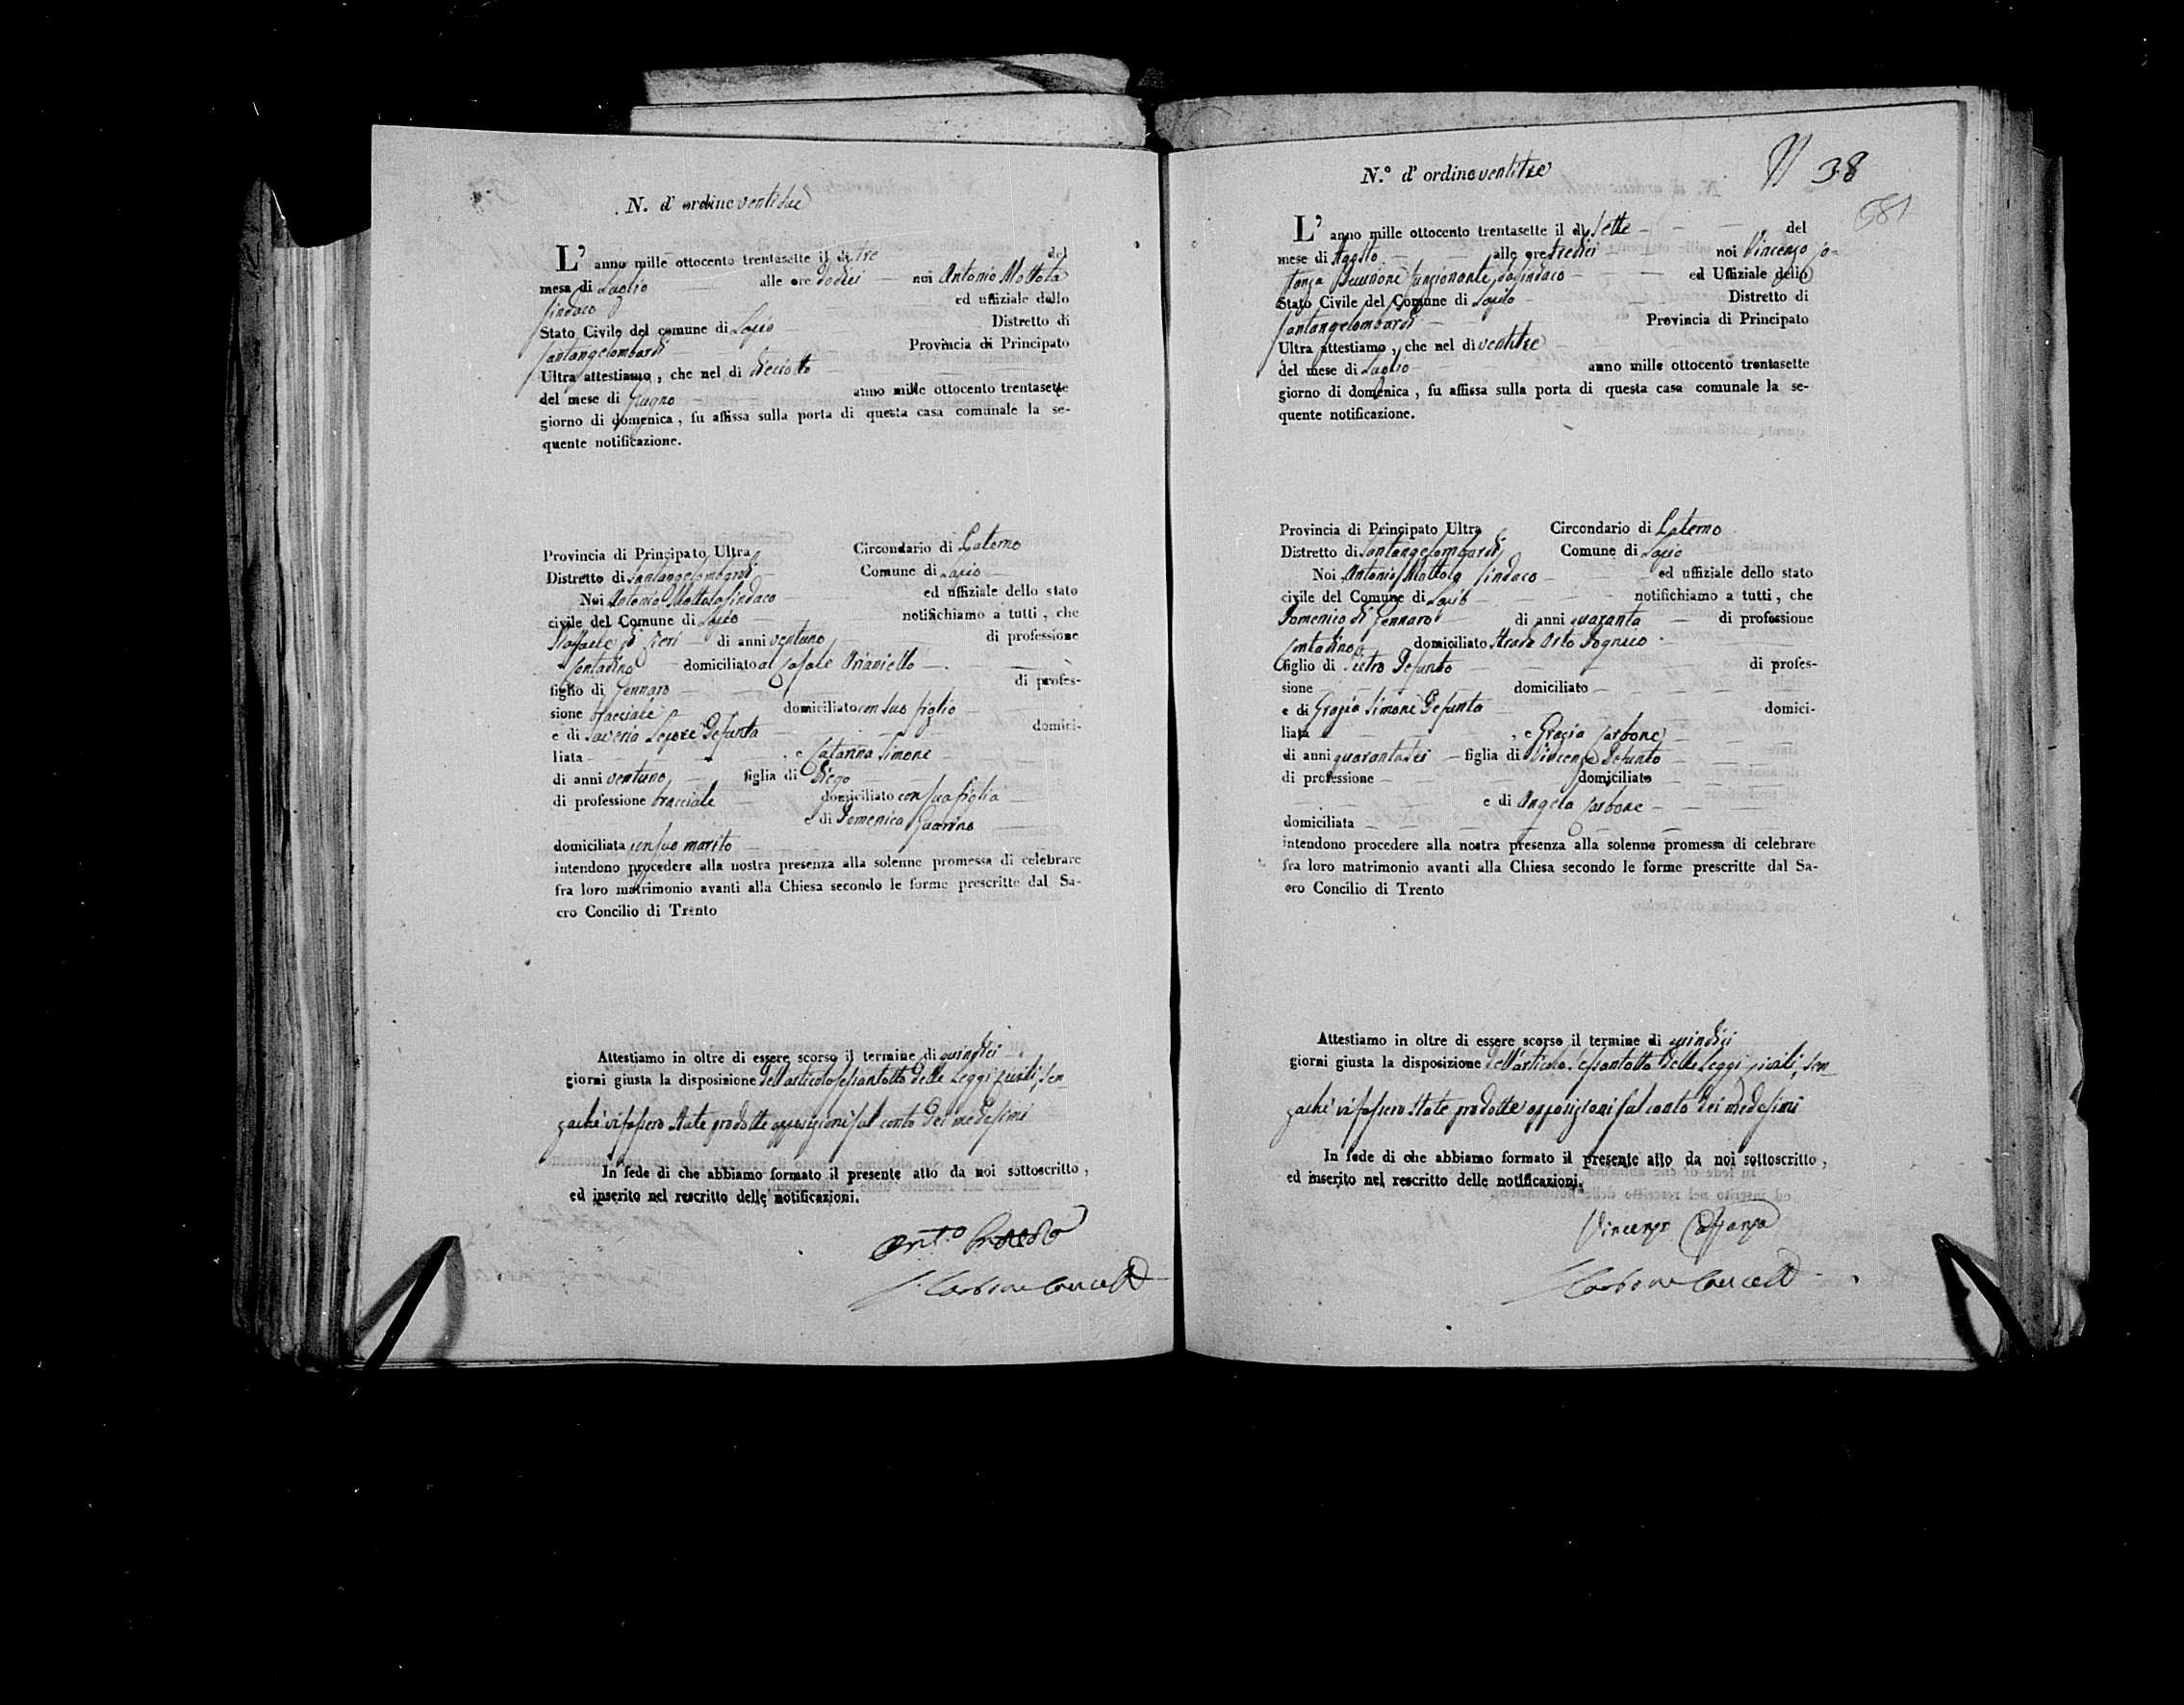 N. d' ordine ventidue
L' anno mille ottocento trentasette il di tre del
mese di Luglio alle ore dodici noi Antonio Mottola
Sindaco ed uffiziale dello
Stato Civile del comune di Lapio Distretto di
Santangelombardi Provincia di Principato
Ultra attestiamo, che nel dì dieciotto
del mese di Giugno anno mille ottocento trentasette
giorno di domenica, fu affissa sulla porta di questa casa comunale la se-
quente notificazione.
Provincia di Principato Ultra Circondario di Paterno
Distretto di Santangelombardi Comune di Lapio
Noi Antonio Mottola Sindaco ed uffiziale dello stato
civile del Comune di Lapio notifichiamo a tutti, che
Raffaele di Ieri di anni ventuno di professione
Contadino domiciliato al Casale Arianiello
figlio di Gennaro di profes-
sione bracciale domiciliato con suo figlio
e di Saveria Lepore Defunta domici-
liata , e Catarina Simone
di anni ventuno figlia di Diego
di professione bracciale domiciliato con sua figlia
e di Domenica Guarino
domiciliata con suo marito
intendono procedere alla nostra presenza alla solenne promessa di celebrare
fra loro matrimonio avanti alla Chiesa secondo le forme prescritte dal Sa-
cro Concilio di Trento
Attestiamo in oltre di essere scorso il termine di quindici
giorni giusta la disposizione dell'articolo sessantotto delle Leggi civili, sen_
zachè vi fossero state prodotte opposizioni sul conto dei medesimi
In fede di che abbiamo formato il presente atto da noi sottoscritto,
ed inserito nel rescritto delle notificazioni.
N.° d' ordine ventitre
38
581
L' anno mille ottocento trentasette il dì sette del
mese di Agosto alle ore tredici noi Vincenzo Co-
stanza Decurione funzionante da sindaco ed Uffiziale dello
Stato Civile del Comune di Lapio Distretto di
Santangelombardi Provincia di Principato
Ultra attestiamo, che nel dì ventitre
del mese di Luglio anno mille ottocento trentasette
giorno di domenica, fu affissa sulla porta di questa casa comunale la se-
quente notificazione.
Provincia di Principato Ultra Circondario di Paterno
Distretto di Santangelombardi Comune di Lapio
Noi Antonio Mottola Sindaco ed uffiziale dello stato
civile del Comune di Lapio notifichiamo a tutti, che
Domenico di Gennaro di anni quaranta di professione
Contadino domiciliato Strada Orto
figlio di Pietro Defunto di profes-
sione domiciliato
e di Grazia Simone Defunta domici-
liata , e Grazia Carbone
di anni quarantasei figlia di Vincenzo Defunto
di professione domiciliato
e di Angela Carbone
domiciliata
intendono procedere alla nostra presenza alla solenne promessa di celebrare
fra loro matrimonio avanti alla Chiesa secondo le forme prescritte dal Sa-
cro Concilio di Trento
Attestiamo in oltre di essere scorso il termine di quindici
giorni giusta la disposizione dell'articolo sessantotto delle Leggi civili, sen_
zachè vi fossero state prodotte opposizioni sul conto dei medesimi
In fede di che abbiamo formato il presente atto da noi sottoscritto,
ed inserito nel rescritto delle notificazioni.
Vincenzo Costanza